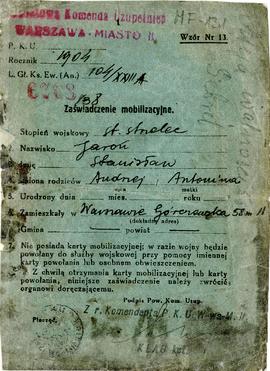 Powiatowa Komenda Uzupełnień
WARSZAWA-MIASTO II.
Wzór Nr 13.
P. K. U.
Rocznik 1904
L. Gł. Ks. Ew. (An.) 104/XXIII A
138
Zaświadczenie mobilizacyjne.
Stopień wojskowy st. strzelec
2. Nazwisko Jaroń
Stanisław
imiona rodziców Andrzej i Antonina
ojca matki
5. Urodzony dnia mies. roku
6. Zamieszkały w Warszawie Górczewska 58 m 18
(dokładny adres)
Gmina powiat
7. Nie posiada karty mobilizacyjnej; w razie wojny będzie
powołany do służby wojskowej przy pomocy imiennej
karty powołania lub osobnem obwieszczeniem.
Z chwilą otrzymania karty mobilizacyjnej lub karty
powołania, niniejsze zaświadczenie należy zwrócić:
organowi doręczającemu.
Podpis Pow. Kom. Uzup.
Pieczęć
Z r. Komendanta P. K. U. W-wa-M. II